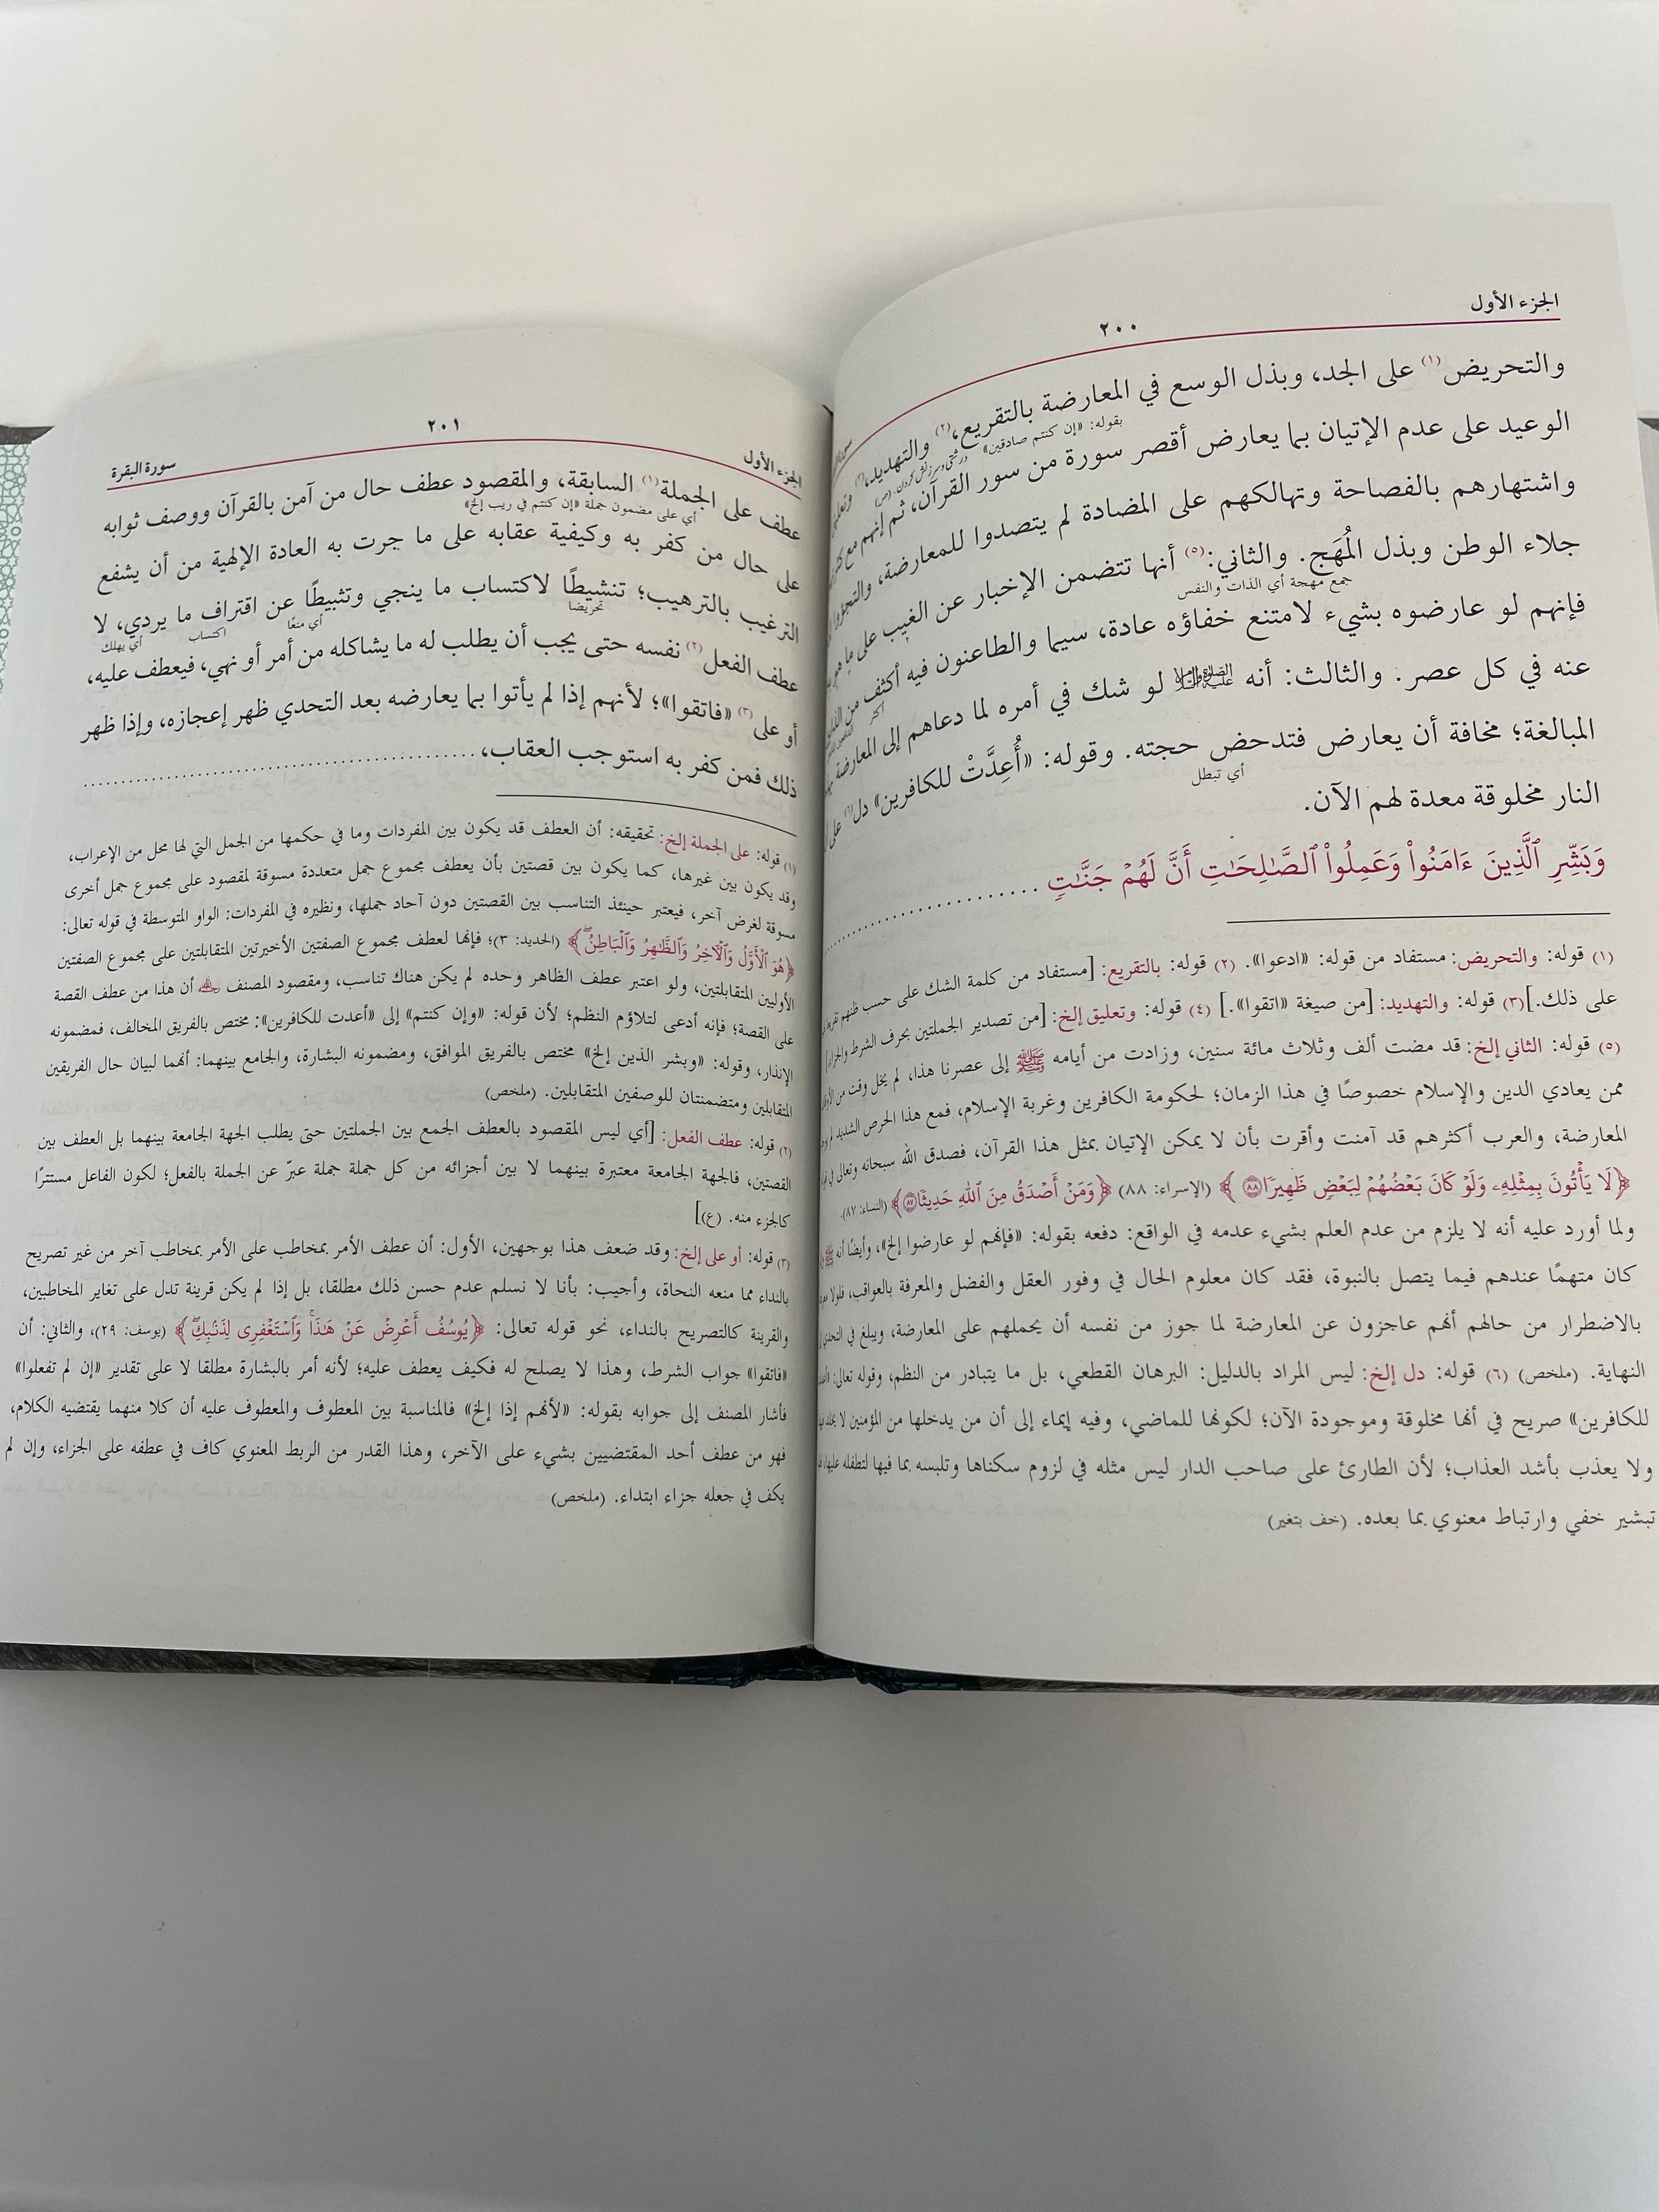 الجزء الأول
٢٠٠
والتحريض(١) على الجد، وبذل الوسع في المعارضة بالتقريع،(٢) والتهديد،(٣)
بقوله: «إن كنتم صادقين»
الوعيد على عدم الإتيان بما يعارض أقصر سورة من سور القرآن، ثم إنهم مع
واشتهارهم بالفصاحة وتهالكهم على المضادة لم يتصدوا للمعارضة،
جلاء الوطن وبذل المُهَج. والثاني:(٥) أنها تتضمن الإخبار عن الغيب على ما هو
جمع مهجة أي الذات والنفس
فإنهم لو عارضوه بشيء لامتنع خفاؤه عادة، سيما والطاعنون فيه أكثف من
أكثر
عنه في كل عصر. والثالث: أنه عليه الصلاة والسلام لو شك في أمره لما دعاهم إلى المعارضة
المبالغة؛ مخافة أن يعارض فتدحض حجته. وقوله: «أُعِدَّتْ للكافرين» دل(٦) على
أي تبطل
النار مخلوقة معدة لهم الآن.
وَبَشِّرِ ٱلَّذِينَ ءَامَنُواْ وَعَمِلُواْ ٱلصَّٰلِحَٰتِ أَنَّ لَهُمْ جَنَّٰتٍ ..........
(١) قوله: والتحريض: مستفاد من قوله: «ادعوا». (٢) قوله: بالتقريع: [مستفاد من كلمة الشك على حسب ظنهم
على ذلك.] (٣) قوله: والتهديد: [من صيغة «اتقوا».] (٤) قوله: وتعليق إلخ: [من تصدير الجملتين بحرف الشرط
(٥) قوله: الثاني إلخ: قد مضت ألف وثلاث مائة سنين، وزادت من أيامه ﷺ إلى عصرنا هذا، لم يخل وقت من
ممن يعادي الدين والإسلام خصوصًا في هذا الزمان؛ لحكومة الكافرين وغربة الإسلام، فمع هذا الحرص الشديد لم
المعارضة، والعرب أكثرهم قد آمنت وأقرت بأن لا يمكن الإتيان بمثل هذا القرآن، فصدق الله سبحانه وتعالى في
﴿لَا يَأْتُونَ بِمِثْلِهِۦ وَلَوْ كَانَ بَعْضُهُمْ لِبَعْضٍ ظَهِيرًا ٨٨﴾ (الإسراء: ٨٨) ﴿وَمَنْ أَصْدَقُ مِنَ ٱللَّهِ حَدِيثًا ٨٧﴾ (النساء: ٨٧).
ولما أورد عليه أنه لا يلزم من عدم العلم بشيء عدمه في الواقع: دفعه بقوله: «فإنهم لو عارضوا إلخ»، وأيضًا أنه
كان متهمًا عندهم فيما يتصل بالنبوة، فقد كان معلوم الحال في وفور العقل والفضل والمعرفة بالعواقب، فلولا
بالاضطرار من حالهم أنهم عاجزون عن المعارضة لما جوز من نفسه أن يحملهم على المعارضة، ويبلغ في التحدي
النهاية. (ملخص) (٦) قوله: دل إلخ: ليس المراد بالدليل: البرهان القطعي، بل ما يتبادر من النظم، وقوله تعالى:
للكافرين» صريح في أنها مخلوقة وموجودة الآن؛ لكونها للماضي، وفيه إيماء إلى أن من يدخلها من المؤمنين لا
ولا يعذب بأشد العذاب؛ لأن الطارئ على صاحب الدار ليس مثله في لزوم سكناها وتلبسه بما فيها لتطفله عليها،
تبشير خفي وارتباط معنوي بما بعده. (خف بتغير)
الجزء الأول
٢٠١
سورة البقرة
عطف على الجملة(١) السابقة، والمقصود عطف حال من آمن بالقرآن ووصف ثوابه
أي على مضمون جملة «إن كنتم في ريب إلخ»
على حال من كفر به وكيفية عقابه على ما جرت به العادة الإلهية من أن يشفع
الترغيب بالترهيب؛ تنشيطًا لاكتساب ما ينجي وتثبيطًا عن اقتراف ما يردي، لا
تحريضا أي منعًا اكتساب أي يهلك
عطف الفعل(٢) نفسه حتى يجب أن يطلب له ما يشاكله من أمر أو نهي، فيعطف عليه،
أو على(٣) «فاتقوا»؛ لأنهم إذا لم يأتوا بما يعارضه بعد التحدي ظهر إعجازه، وإذا ظهر
ذلك فمن كفر به استوجب العقاب، ..........
(١) قوله: على الجملة إلخ: تحقيقه: أن العطف قد يكون بين المفردات وما في حكمها من الجمل التي لها محل من الإعراب،
وقد يكون بين غيرها، كما يكون بين قصتين بأن يعطف مجموع جمل متعددة مسوقة لمقصود على مجموع جمل أخرى
مسوقة لغرض آخر، فيعتبر حينئذ التناسب بين القصتين دون آحاد جملها، ونظيره في المفردات: الواو المتوسطة في قوله تعالى:
﴿هُوَ ٱلْأَوَّلُ وَٱلْآخِرُ وَٱلظَّٰهِرُ وَٱلْبَاطِنُ﴾ (الحديد: ٣)؛ فإنها لعطف مجموع الصفتين الأخيرتين المتقابلتين على مجموع الصفتين
الأوليين المتقابلتين، ولو اعتبر عطف الظاهر وحده لم يكن هناك تناسب، ومقصود المصنف رحمه الله أن هذا من عطف القصة
على القصة؛ فإنه أدعى لتلاؤم النظم؛ لأن قوله: «وإن كنتم» إلى «أعدت للكافرين»: مختص بالفريق المخالف، فمضمونه
الإنذار، وقوله: «وبشر الذين إلخ» مختص بالفريق الموافق، ومضمونه البشارة، والجامع بينهما: أنهما لبيان حال الفريقين
المتقابلين ومتضمنتان للوصفين المتقابلين. (ملخص)
(٢) قوله: عطف الفعل: [أي ليس المقصود بالعطف الجمع بين الجملتين حتى يطلب الجهة الجامعة بينهما بل العطف بين
القصتين، فالجهة الجامعة معتبرة بينهما لا بين أجزائه من كل جملة جملة عبرّ عن الجملة بالفعل؛ لكون الفاعل مستترًا
كالجزء منه. (ع)]
(٣) قوله: أو على إلخ: وقد ضعف هذا بوجهين، الأول: أن عطف الأمر بمخاطب على الأمر بمخاطب آخر من غير تصريح
بالنداء مما منعه النحاة، وأجيب: بأنا لا نسلم عدم حسن ذلك مطلقا، بل إذا لم يكن قرينة تدل على تغاير المخاطبين،
والقرينة كالتصريح بالنداء، نحو قوله تعالى: ﴿يُوسُفُ أَعْرِضْ عَنْ هَٰذَا وَٱسْتَغْفِرِى لِذَنۢبِكِ﴾ (يوسف: ٢٩)، والثاني: أن
«فاتقوا» جواب الشرط، وهذا لا يصلح له فكيف يعطف عليه؛ لأنه أمر بالبشارة مطلقا لا على تقدير «إن لم تفعلوا»
فأشار المصنف إلى جوابه بقوله: «لأنهم إذا إلخ» فالمناسبة بين المعطوف والمعطوف عليه أن كلا منهما يقتضيه الكلام،
فهو من عطف أحد المقتضيين بشيء على الآخر، وهذا القدر من الربط المعنوي كاف في عطفه على الجزاء، وإن لم
يكف في جعله جزاء ابتداء. (ملخص)